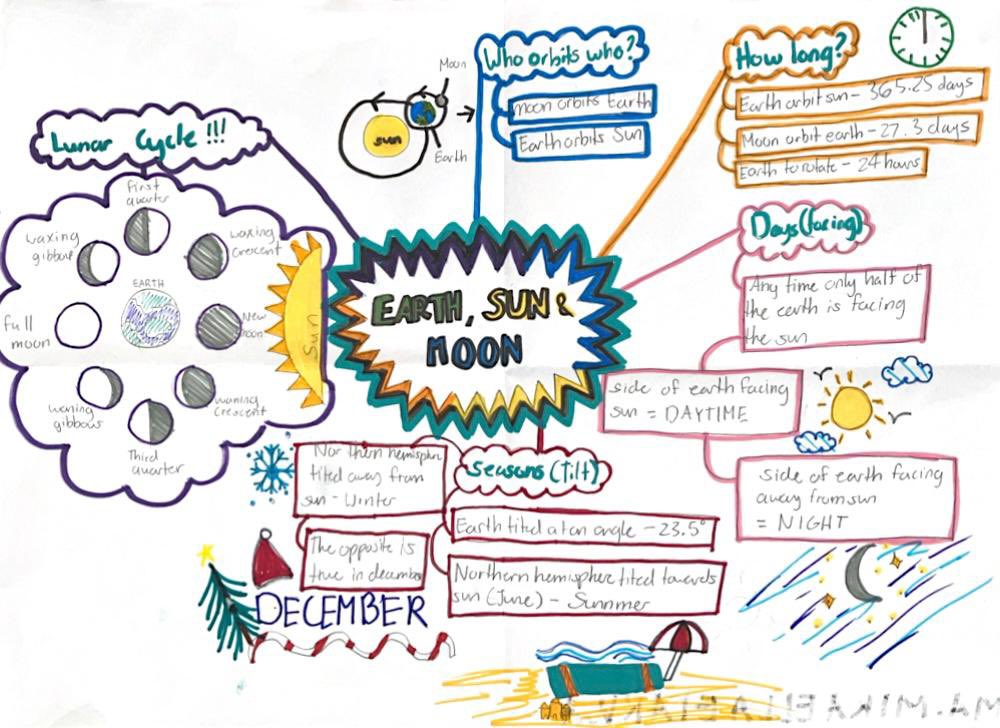 Lunar Cycle !!!
First
quarter
waxing
gibbous
waxing
crescent
EARTH
full
moon
New
moon
waning
gibbous
waning
crescent
Third
quarter
Sun
Moon
sun
Earth
Who orbits who?
moon orbits Earth
Earth orbits Sun
How long?
Earth orbit sun - 365.25 days
Moon orbit earth - 27.3 days
Earth to rotate - 24 hours
EARTH, SUN &
MOON
Days (facing)
Any time only half of
the earth is facing
the sun
side of earth facing
sun = DAYTIME
side of earth facing
away from sun
= NIGHT
Seasons (Tilt)
Earth tited at an angle - 23.5°
Northern hemisphere tited towards
sun (June) - Summer
Northern hemisphere
tited away from
sun - Winter
The opposite is
true in december
DECEMBER